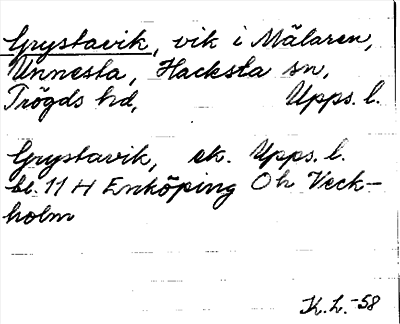 Grystavik, vik i Mälaren,
Unnesta, Hacksta sn,
Trögds hd, Upps. l.
Grystavik, ek. Upps. l.
bl. 11 H Enköping Öh Veck-
holm
K.L.-58